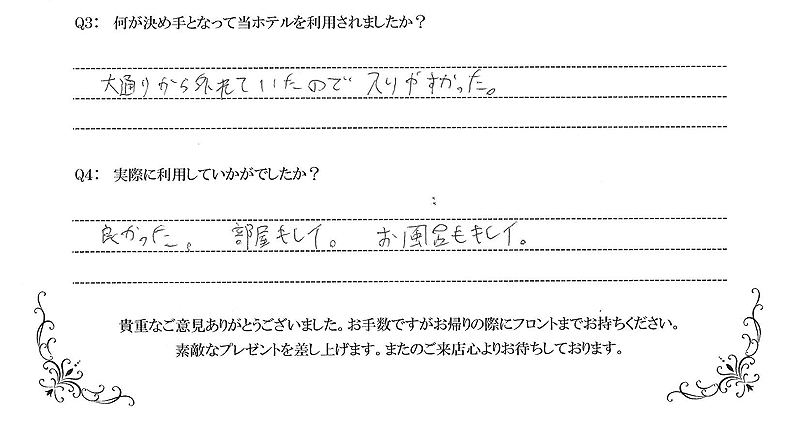 Q3: 何が決め手となって当ホテルを利用されましたか？
大通りから外れていたので 入りやすかった。
Q4: 実際に利用していかがでしたか？
良かった。 部屋もキレイ。 お風呂もキレイ。
貴重なご意見ありがとうございました。お手数ですがお帰りの際にフロントまでお持ちください。
素敵なプレゼントを差し上げます。またのご来店心よりお待ちしております。